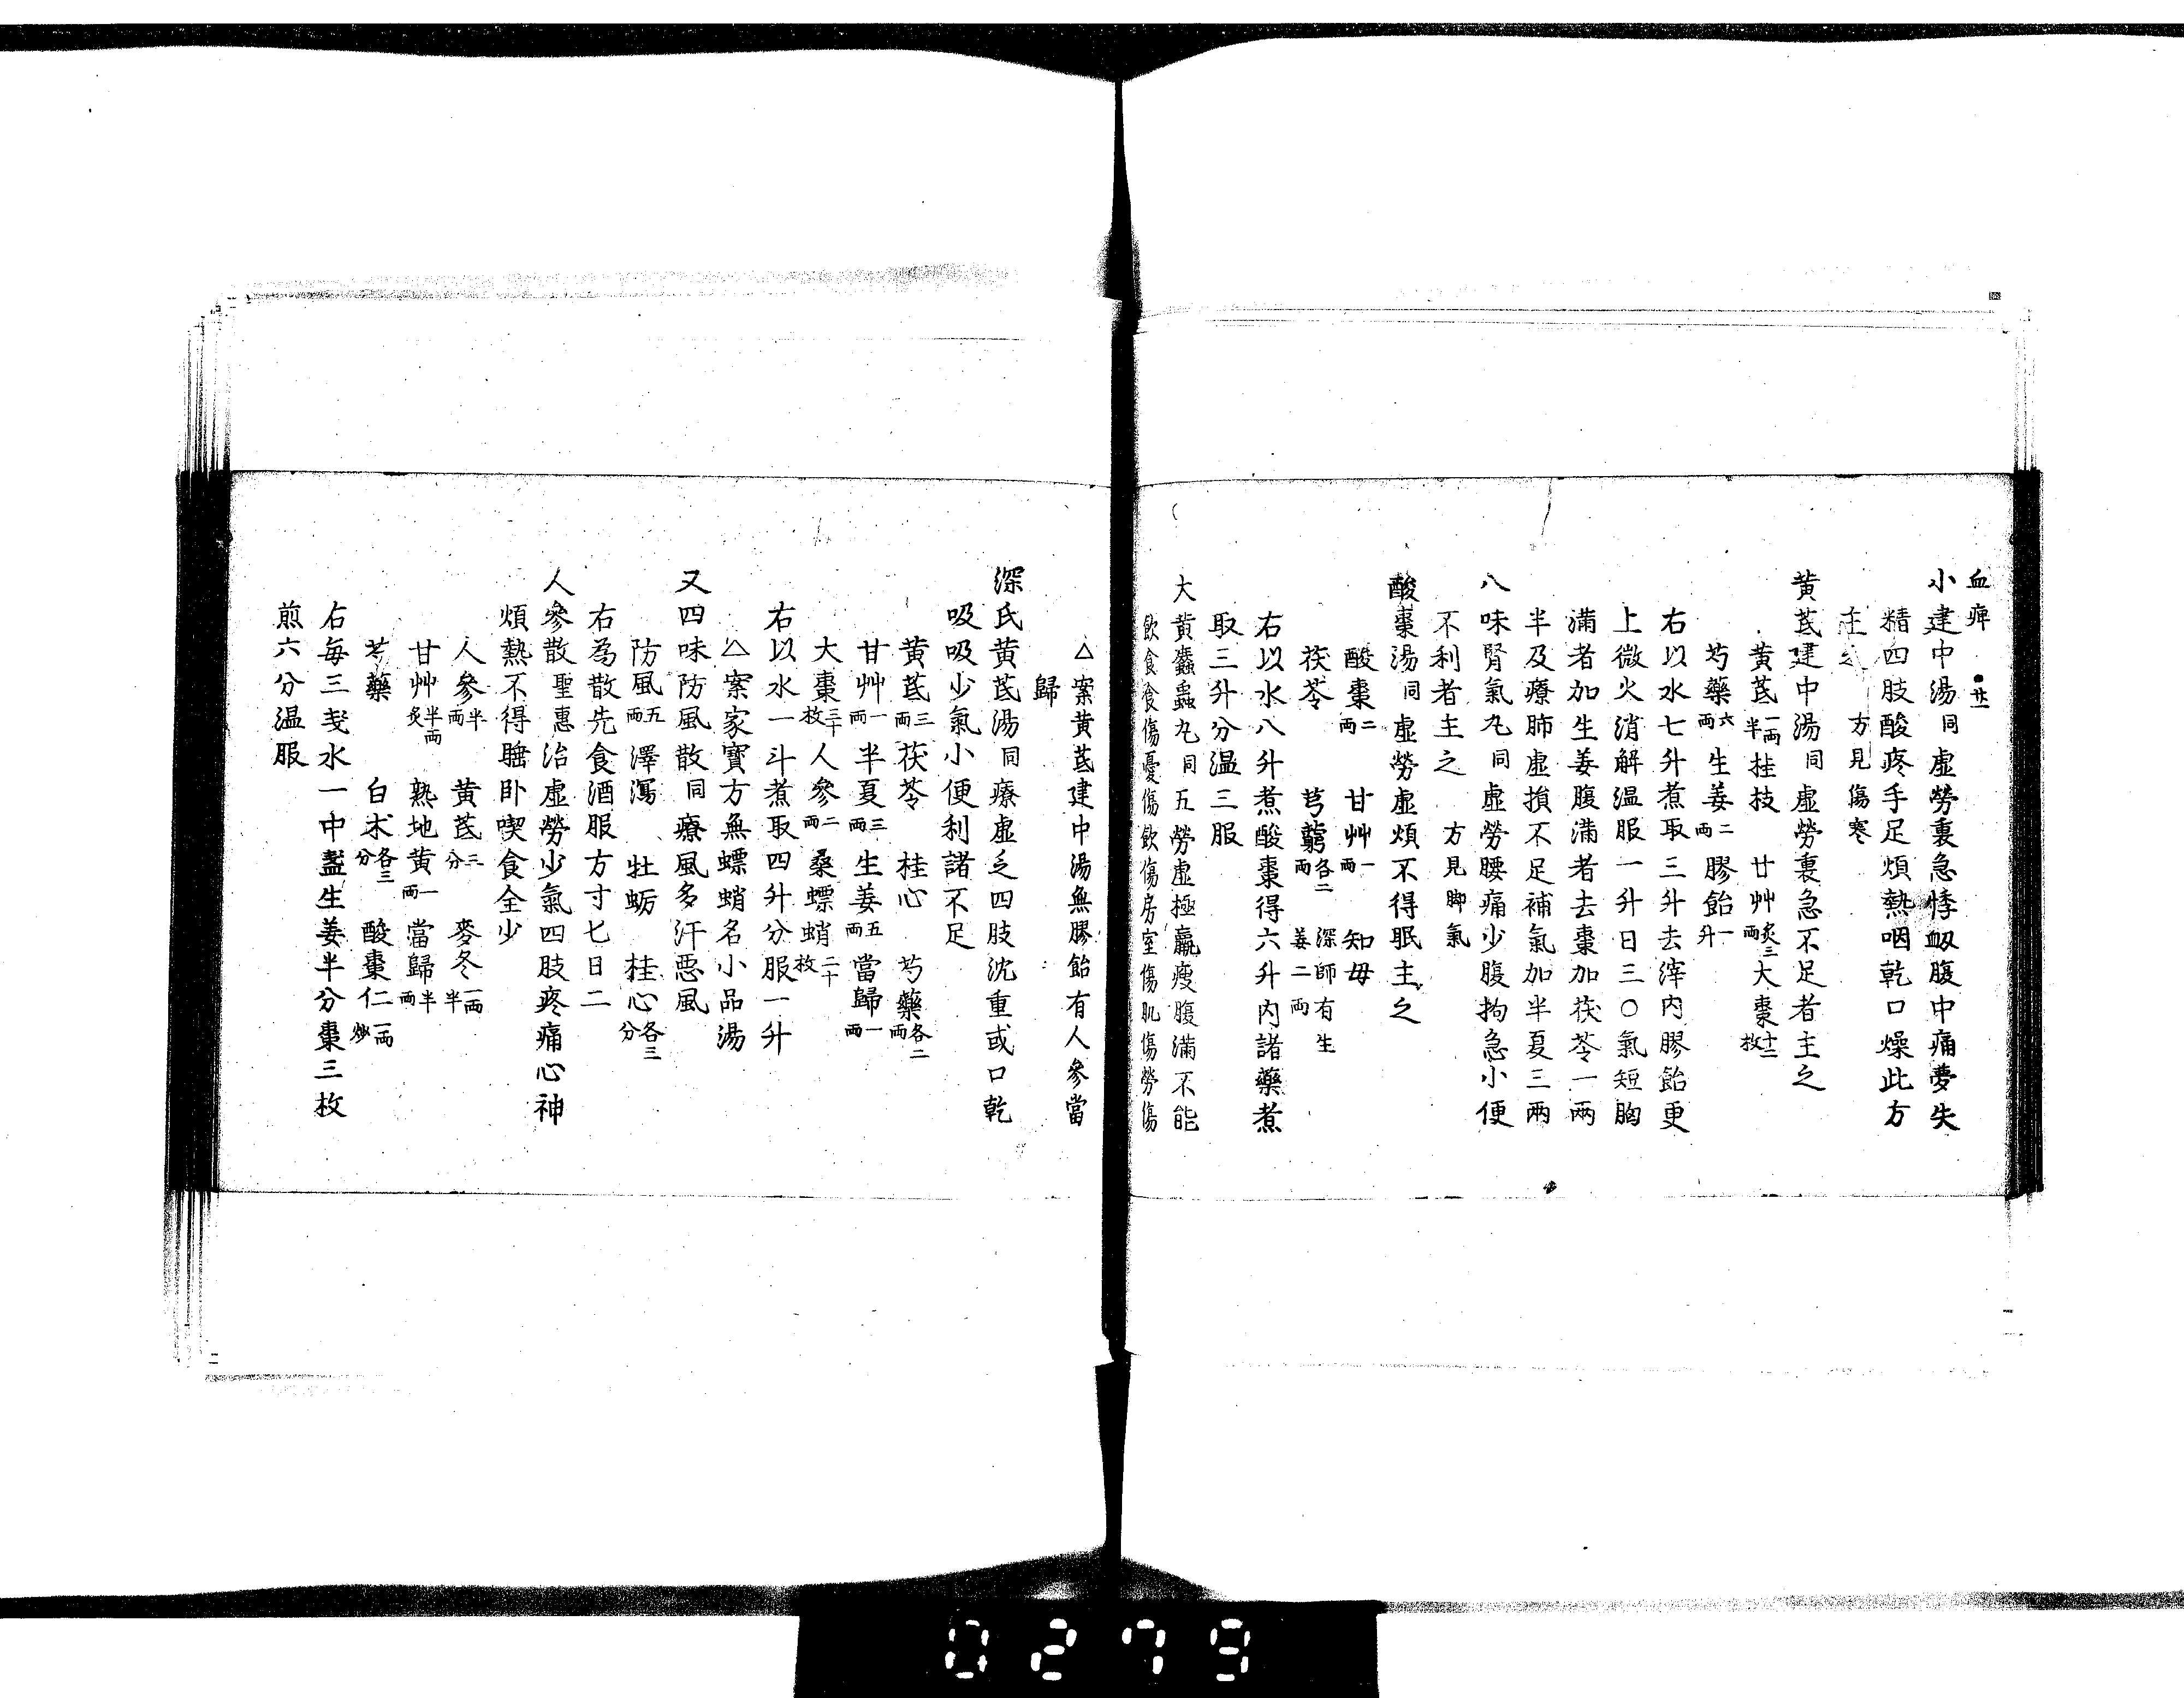 血痺 廿一
小建中湯同虛勞裏急悸衂腹中痛夢失
精四肢酸疼手足煩熱咽乾口燥此方
主之 方見傷寒
黄芪建中湯同虛勞裏急不足者主之
黄芪一両半桂枝 甘艸炙三両大棗十二枚
芍藥六両生姜二両膠飴一升
右以水七升煮取三升去滓内膠飴更
上微火消解温服一升日三○氣短胸
滿者加生姜腹滿者去棗加茯苓一兩
半及療肺虛損不足補氣加半夏三兩
八味腎氣丸同虛勞腰痛少腹拘急小便
不利者主之 方見脚氣
酸棗湯同虛勞虛煩不得眠主之
酸棗二両 甘艸一両 知毋
茯苓 芎藭各二両 深師有生姜二両
右以水八升煮酸棗得六升内諸藥煮
取三升分温三服
大黄䗪蟲丸同五勞虛極羸瘦腹滿不能
飲食食傷憂傷飲傷房室傷肌傷勞傷
△案黄芪建中湯無膠飴有人參當
歸
深氏黄芪湯同療虛乏四肢沈重或口乾
吸吸少氣小便利諸不足
黄芪三両茯苓 桂心 芍藥各二両
甘艸一両半夏三両生姜五両當歸一両
大棗三十枚人參二両桑螵蛸二十枚
右以水一斗煮取四升分服一升
△案家寶方無螵蛸名小品湯
又四味防風散同療風多汗惡風
防風五両澤瀉 牡蛎 桂心各三分
右為散先食酒服方寸匕日二
人參散聖惠治虛勞少氣四肢疼痛心神
煩熱不得睡卧喫食全少
人參半両 黄芪三分 麥冬一両半
甘艸半両炙 熟地黄一両當歸半両
芍藥 白朮各三分 酸棗仁一両炒
右毎三戔水一中盞生姜半分棗三枚
煎六分温服
0279